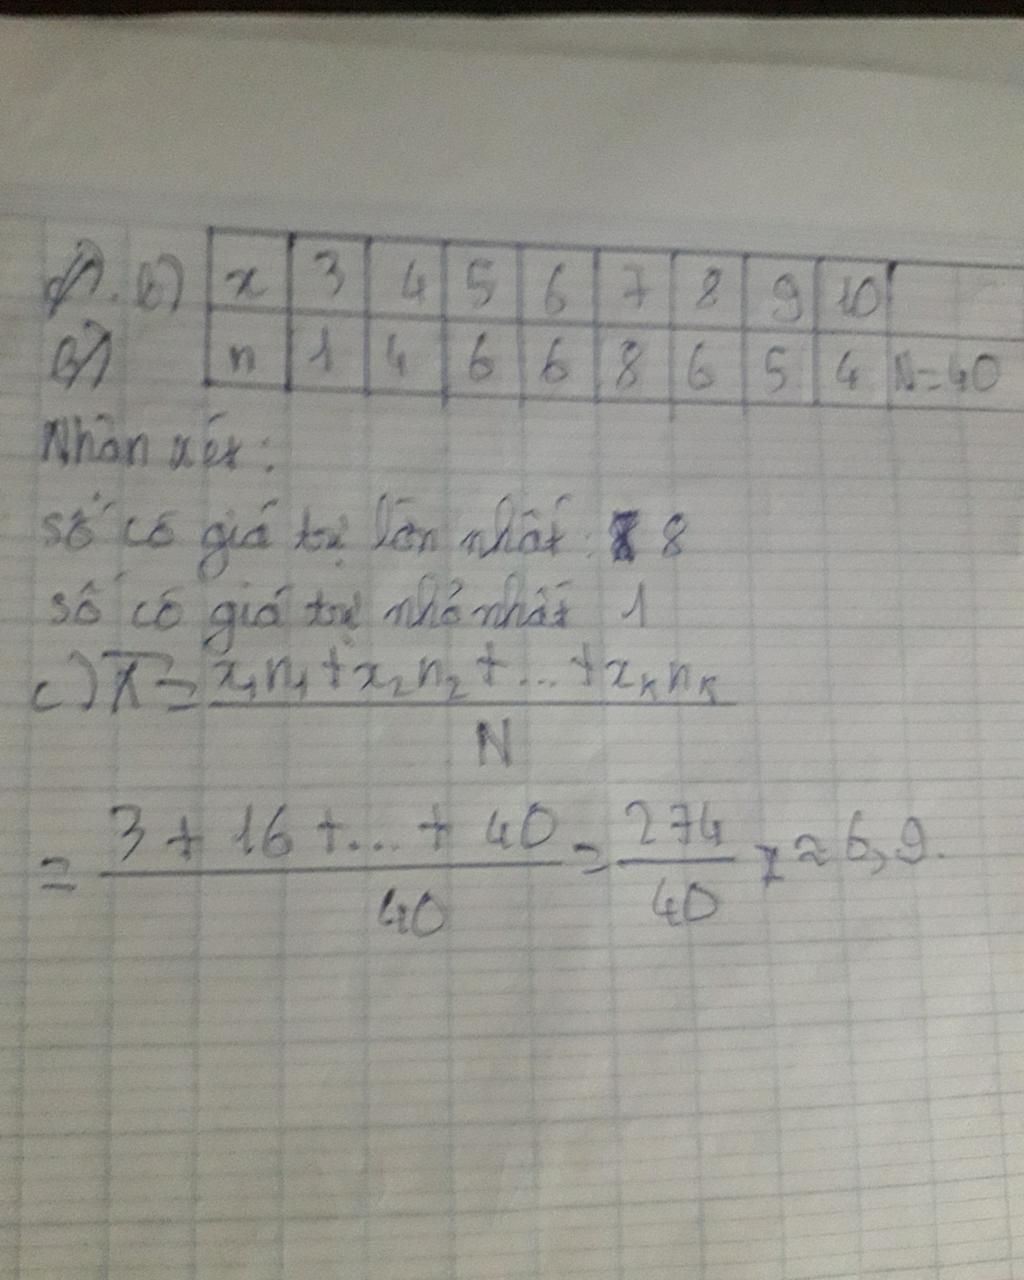 b) x 3 4 5 6 7 8 9 10
n 1 4 6 6 8 6 5 4 N=40
Nhận xét:
số có giá trị lớn nhất: 8
số có giá trị nhỏ nhất 1
c) X̄ = x₁n₁ + x₂n₂ + ... + xₖnₖ
N
= 3 + 16 + ... + 40 = 274 ≈ 6,9.
40 40